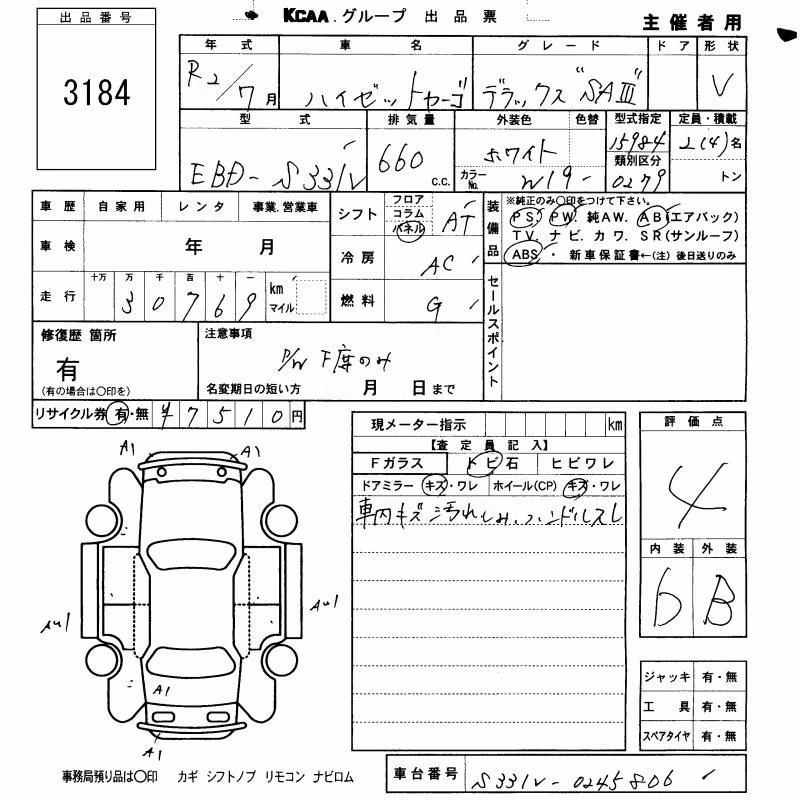 KCAA.グループ 出品票
主催者用
出品番号
3184
年式 車名 グレード ドア 形状
R2/7月 ハイゼットカーゴ デラックス"SAIII" V
型式 排気量 外装色 色替 型式指定 定員・積載
EBD-S331V 660 c.c. ホワイト 15984 2(4)名
カラーNo. W19 類別区分 0279 トン
車歴 自家用 レンタ 事業.営業車
シフト フロア コラム パネル AT
装備品 ※純正のみ○印をつけて下さい。
PS. PW. 純AW. AB(エアバック)
TV. ナビ. カワ. SR(サンルーフ)
ABS・ 新車保証書←(注)後日送りのみ
車検 年 月
冷房 AC
走行 十万 万 千 百 十 一 km マイル
30769
燃料 G
セールスポイント
修復歴 箇所
有
(有の場合は○印を)
注意事項
P/W F席のみ
名変期日の短い方 月 日まで
リサイクル券 有・無 ¥7510円
現メーター指示 km
【査定員記入】
Fガラス トビ石 ヒビワレ
ドアミラー キズ・ワレ ホイール(CP) キズ・ワレ
車内キズ汚れしみ、ハンドルスレ
評価点
4
内装 外装
b B
A1 A1
AU1 AU1
A1
A1
ジャッキ 有・無
工具 有・無
スペアタイヤ 有・無
事務局預り品は○印 カギ シフトノブ リモコン ナビロム
車台番号 S331V-0245806